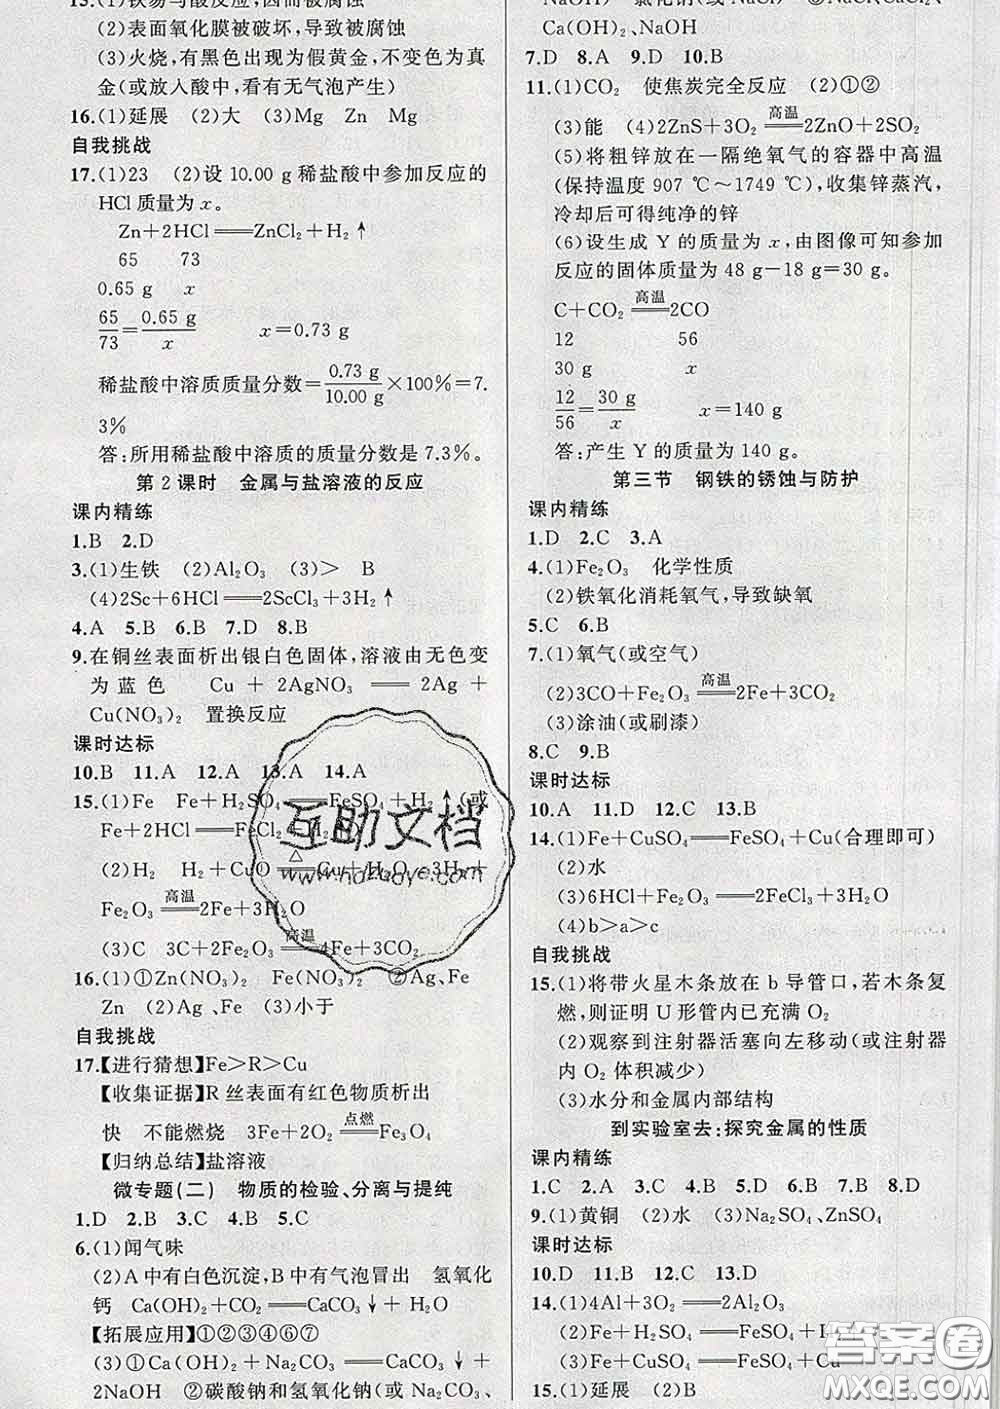 15.(1)铁易与酸反应,因而被腐蚀
(2)表面氧化膜被破坏,导致被腐蚀
(3)火烧,有黑色出现为假黄金,不变色为真
金(或放入酸中,看有无气泡产生)
16.(1)延展 (2)大 (3)Mg Zn Mg
自我挑战
17.(1)23 (2)设 10.00 g 稀盐酸中参加反应的
HCl 质量为 x。
Zn+2HCl══ZnCl₂+H₂↑
65 73
0.65 g x
65/73=0.65 g/x x=0.73 g
稀盐酸中溶质质量分数=0.73 g/10.00 g×100%=7.
3%
答:所用稀盐酸中溶质的质量分数是 7.3%。
第 2 课时 金属与盐溶液的反应
课内精练
1.B 2.D
3.(1)生铁 (2)Al₂O₃ (3)> B
(4)2Sc+6HCl══2ScCl₃+3H₂↑
4.A 5.B 6.B 7.D 8.B
9.在铜丝表面析出银白色固体,溶液由无色变
为蓝色 Cu + 2AgNO₃ ══ 2Ag +
Cu(NO₃)₂ 置换反应
课时达标
10.B 11.A 12.A 13.A 14.A
15.(1)Fe Fe+H₂SO₄══FeSO₄+H₂↑(或
Fe+2HCl══FeCl₂+H₂↑)
(2)H₂ H₂+CuO═△═Cu+H₂O 3H₂+
Fe₂O₃═高温═2Fe+3H₂O
(3)C 3C+2Fe₂O₃═高温═4Fe+3CO₂
16.(1)①Zn(NO₃)₂ Fe(NO₃)₂ ②Ag、Fe
Zn (2)Ag、Fe (3)小于
自我挑战
17【进行猜想】Fe>R>Cu
【收集证据】R 丝表面有红色物质析出
快 不能燃烧 3Fe+2O₂═点燃═Fe₃O₄
【归纳总结】盐溶液
微专题(二) 物质的检验、分离与提纯
1.D 2.B 3.C 4.B 5.C
6.(1)闻气味
(2)A 中有白色沉淀,B 中有气泡冒出 氢氧化
钙 Ca(OH)₂+CO₂══CaCO₃↓+H₂O
【拓展应用】①②③④⑥⑦
(3)①Ca(OH)₂+Na₂CO₃══CaCO₃↓+
2NaOH ②碳酸钠和氢氧化钠(或 Na₂CO₃、
NaOH) 氯化钠(或 NaCl) ③NaCl、CaCl₂、
Ca(OH)₂、NaOH
7.D 8.A 9.D 10.B
11.(1)CO₂ 使焦炭完全反应 (2)①②
(3)能 (4)2ZnS+3O₂═高温═2ZnO+2SO₂
(5)将粗锌放在一隔绝氧气的容器中高温
(保持温度 907 ℃~1749 ℃),收集锌蒸汽,
冷却后可得纯净的锌
(6)设生成 Y 的质量为 x,由图像可知参加
反应的固体质量为 48 g-18 g=30 g。
C+CO₂═高温═2CO
12 56
30 g x
12/56=30 g/x x=140 g
答:产生 Y 的质量为 140 g。
第三节 钢铁的锈蚀与防护
课内精练
1.D 2.C 3.A
4.(1)Fe₂O₃ 化学性质
(2)铁氧化消耗氧气,导致缺氧
5.C 6.B
7.(1)氧气(或空气)
(2)3CO+Fe₂O₃═高温═2Fe+3CO₂
(3)涂油(或刷漆)
8.C 9.B
课时达标
10.A 11.D 12.C 13.B
14.(1)Fe+CuSO₄══FeSO₄+Cu(合理即可)
(2)水
(3)6HCl+Fe₂O₃══2FeCl₃+3H₂O
(4)b>a>c
自我挑战
15.(1)将带火星木条放在 b 导管口,若木条复
燃,则证明 U 形管内已充满 O₂
(2)观察到注射器活塞向左移动(或注射器
内 O₂ 体积减少)
(3)水分和金属内部结构
到实验室去:探究金属的性质
课内精练
1.C 2.A 3.D 4.D 5.D 6.A 7.B 8.D
9.(1)黄铜 (2)水 (3)Na₂SO₄、ZnSO₄
课时达标
10.D 11.D 12.C 13.D
14.(1)4Al+3O₂══2Al₂O₃
(2)Fe+H₂SO₄══FeSO₄+
(3)Fe+CuSO₄══FeSO₄+Cu
15.(1)延展 (2)B
互助文档
www.hdzuoye.com
答案圈
MXQE.COM